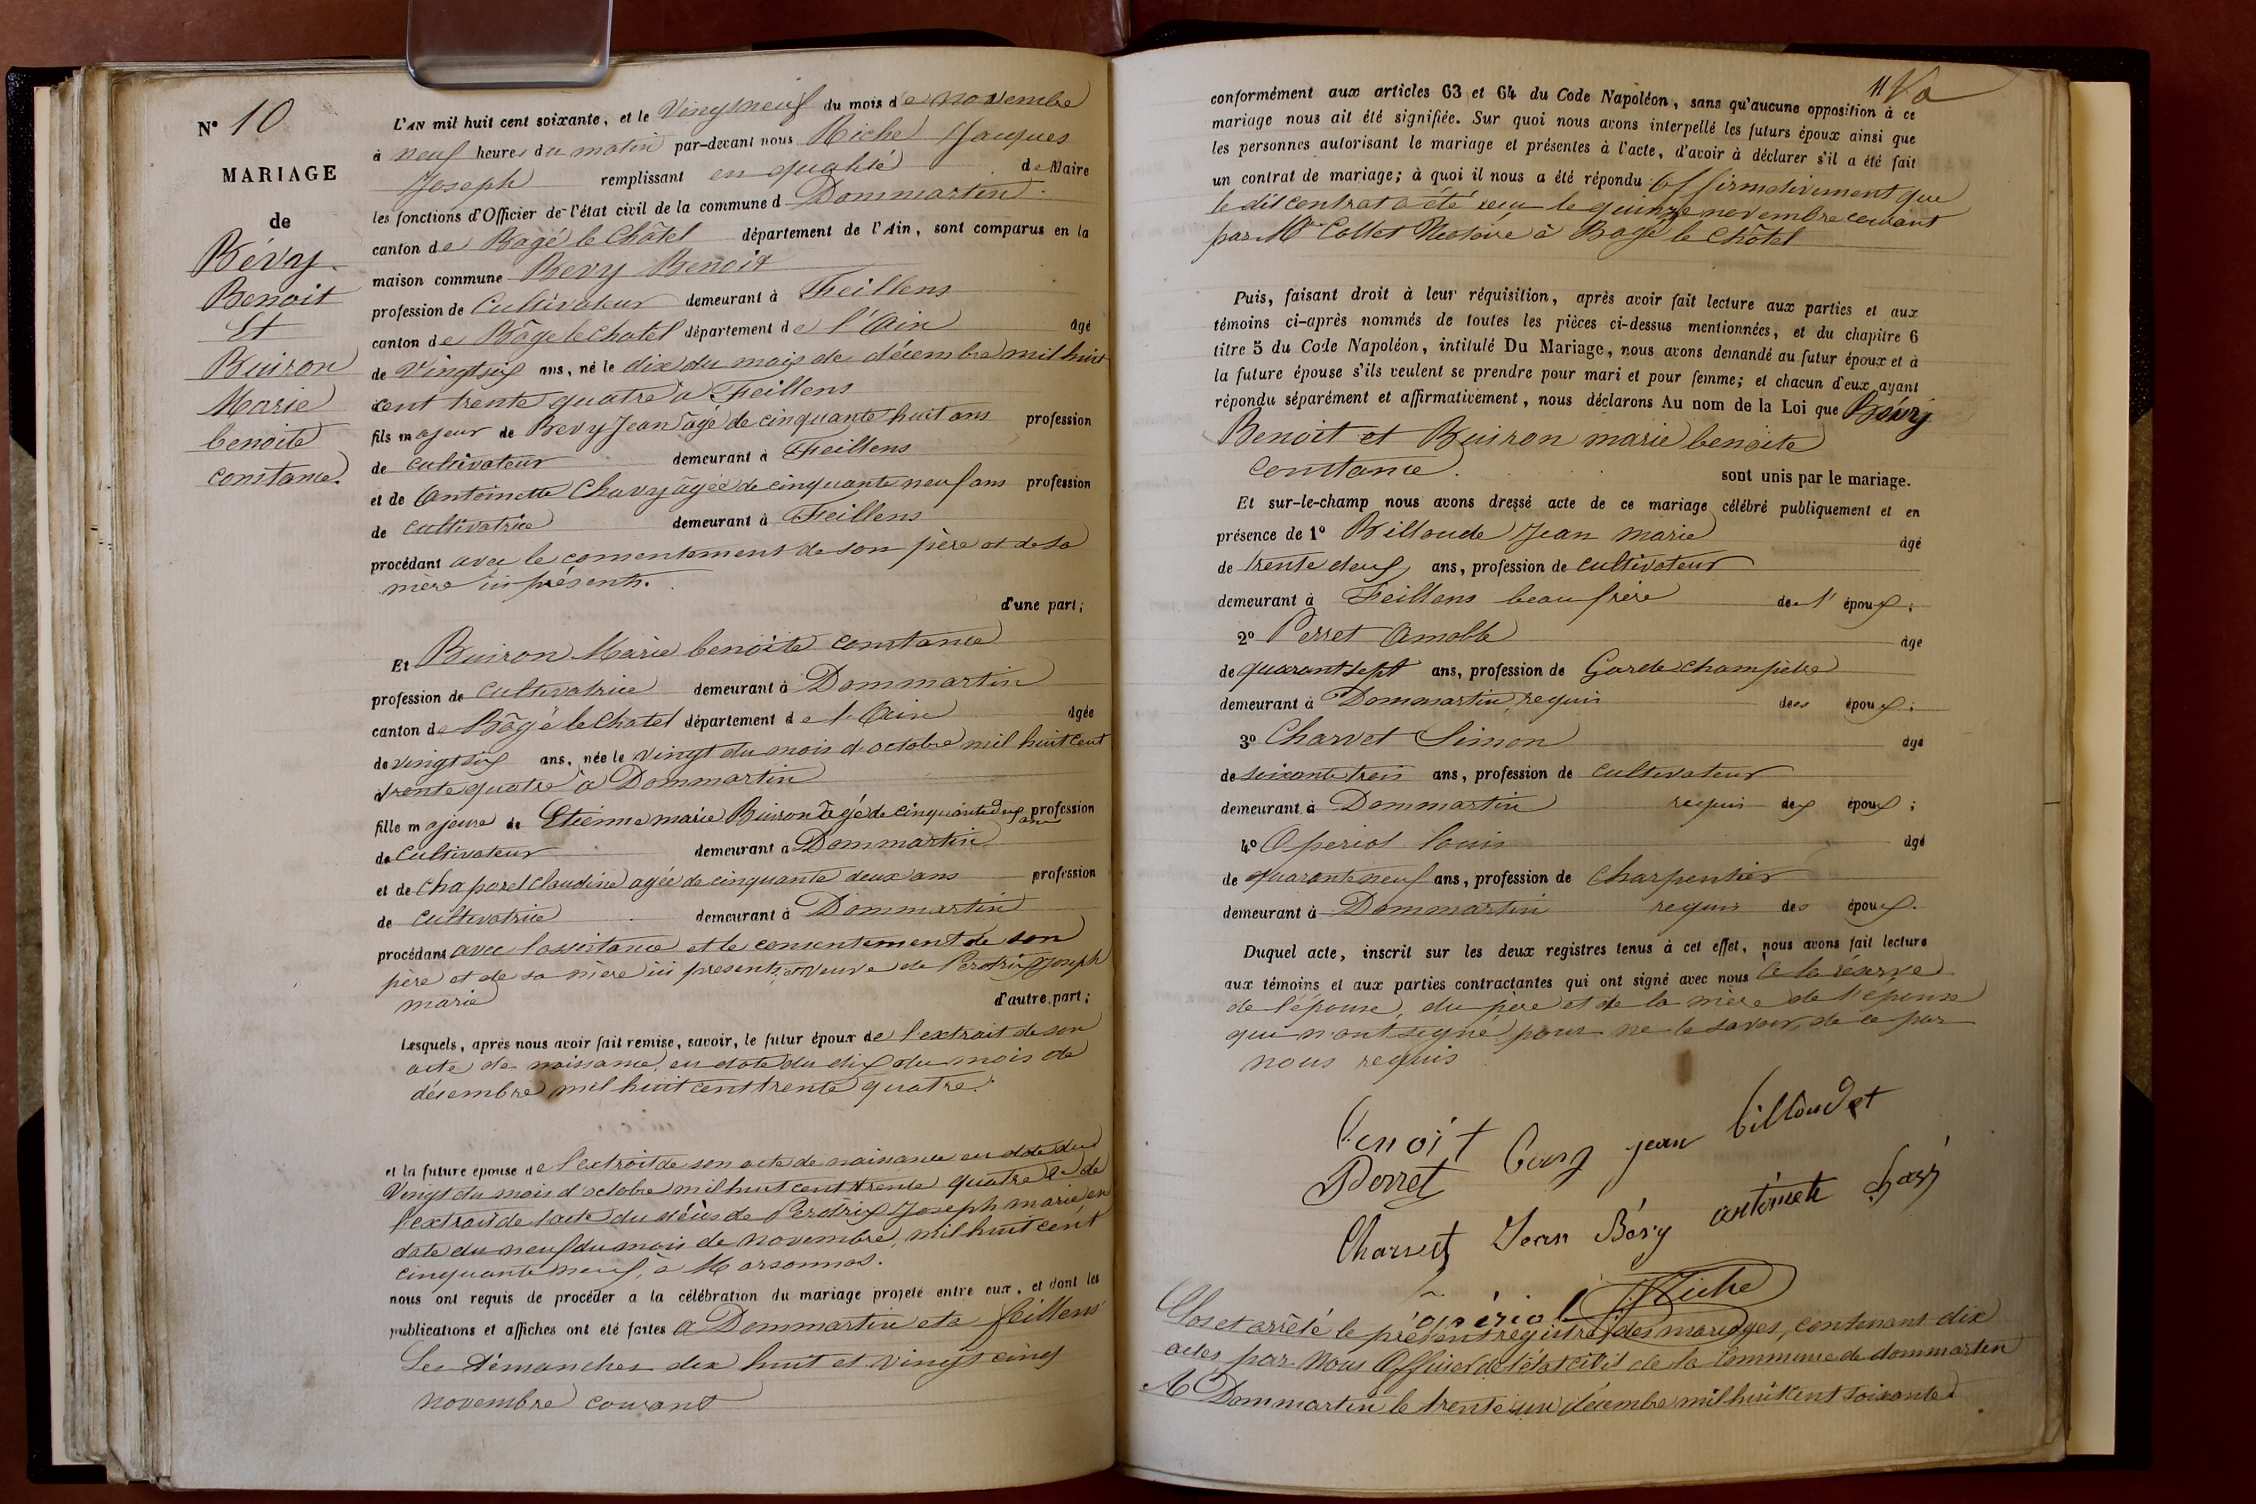 N° 10
MARIAGE
de
Bévy
Benoit
Et
Buiron
Marie
benoite
constance.
L'AN mil huit cent soixante, et le Vingtneuf du mois de novembre
à neuf heures du matin par-devant nous Riche Jacques
Joseph remplissant en qualité de Maire
les fonctions d'Officier de l'état civil de la commune d Dommartin
canton de Bagé le Châtel département de l'Ain, sont comparus en la
maison commune Bevy Benoit
profession de Cultivateur demeurant à Feillens
canton de Bâgé le Chatel département de l'Ain âgé
de Vingtsix ans, né le dix du mois de décembre mil huit
cent trente quatre à Feillens
fils majeur de Bevy Jean âgé de cinquante huit ans profession
de cultivateur demeurant à Feillens
et de Antoinette Chavy âgée de cinquante neuf ans profession
de cultivatrice demeurant à Feillens
procédant avec le consentement de son père et de sa
mère ici présents.
d'une part;
Et Buiron Marie benoite constance
profession de cultivatrice demeurant à Dommartin
canton de Bâgé le Chatel département de l'Ain âgée
de vingt six ans, née le vingt du mois d'octobre mil huit cent
trente quatre à Dommartin
fille majeure de Etienne marie Buiron âgé de cinquante deux ans profession
de Cultivateur demeurant à Dommartin
et de Chaparel Claudine agée de cinquante deux ans profession
de cultivatrice demeurant à Dommartin
procédant avec l'assistance et le consentement de son
père et de sa mère ici presents, et veuve de Perdrix Joseph
marie d'autre part;
Lesquels, après nous avoir fait remise, savoir, le futur époux de l'extrait de son
acte de naissance, en date du dix du mois de
décembre mil huit cent trente quatre.
et la future épouse de l'extrait de son acte de naissance en date du
Vingt du mois d'octobre mil huit cent trente quatre & de
l'extrait de l'acte du décès de Perdrix Joseph marie en
date du neuf du mois de novembre, mil huit cent
cinquante neuf, à Marsonnas.
nous ont requis de procéder a la célébration du mariage projeté entre eux, et dont les
publications et affiches ont été faites à Dommartin et à feillens
Les dimanches dix huit et vingt cinq
novembre courant
11 Va
conformément aux articles 63 et 64 du Code Napoléon, sans qu'aucune opposition à ce
mariage nous ait été signifiée. Sur quoi nous avons interpellé les futurs époux ainsi que
les personnes autorisant le mariage et présentes à l'acte, d'avoir à déclarer s'il a été fait
un contrat de mariage; à quoi il nous a été répondu affirmativement que
le dit contrat a été reçu le quinze novembre courant
par Me Collet Notaire à Bagé le Châtel
Puis, faisant droit à leur réquisition, après avoir fait lecture aux parties et aux
témoins ci-après nommés de toutes les pièces ci-dessus mentionnées, et du chapitre 6
titre 5 du Code Napoléon, intitulé Du Mariage, nous avons demandé au futur époux et à
la future épouse s'ils veulent se prendre pour mari et pour femme; et chacun d'eux ayant
répondu séparément et affirmativement, nous déclarons Au nom de la Loi que Bévy
Benoit et Buiron marie benoite
constance. sont unis par le mariage.
Et sur-le-champ nous avons dressé acte de ce mariage célébré publiquement et en
présence de 1° Billoude Jean marie âgé
de trente deux ans, profession de cultivateur
demeurant à Feillens beau frère de l' époux;
2° Perret Amable âgé
de quarant sept ans, profession de Garde champêtre
demeurant à Dommartin, requis des époux;
3° Charvet Simon âgé
de soixante trois ans, profession de cultivateur
demeurant à Dommartin requis des époux;
4° Operiol louis âgé
de quarante neuf ans, profession de Charpentier
demeurant à Dommartin requis des époux.
Duquel acte, inscrit sur les deux registres tenus à cet effet, nous avons fait lecture
aux témoins et aux parties contractantes qui ont signé avec nous à la réserve
de l'épouse, du père et de la mère de l'épouse
qui n'ont signé pour ne le savoir, de ce par
nous requis
Benoit Bevy jean billoudet
Perret
Charvet Jean Bévy antoinete
opériol JRiche
Clos et arrêté le présent registre des mariages, contenant dix
actes, par Nous Officier de l'état civil de la Commune de dommartin
A Dommartin le trente un décembre mil huit cent soixante.